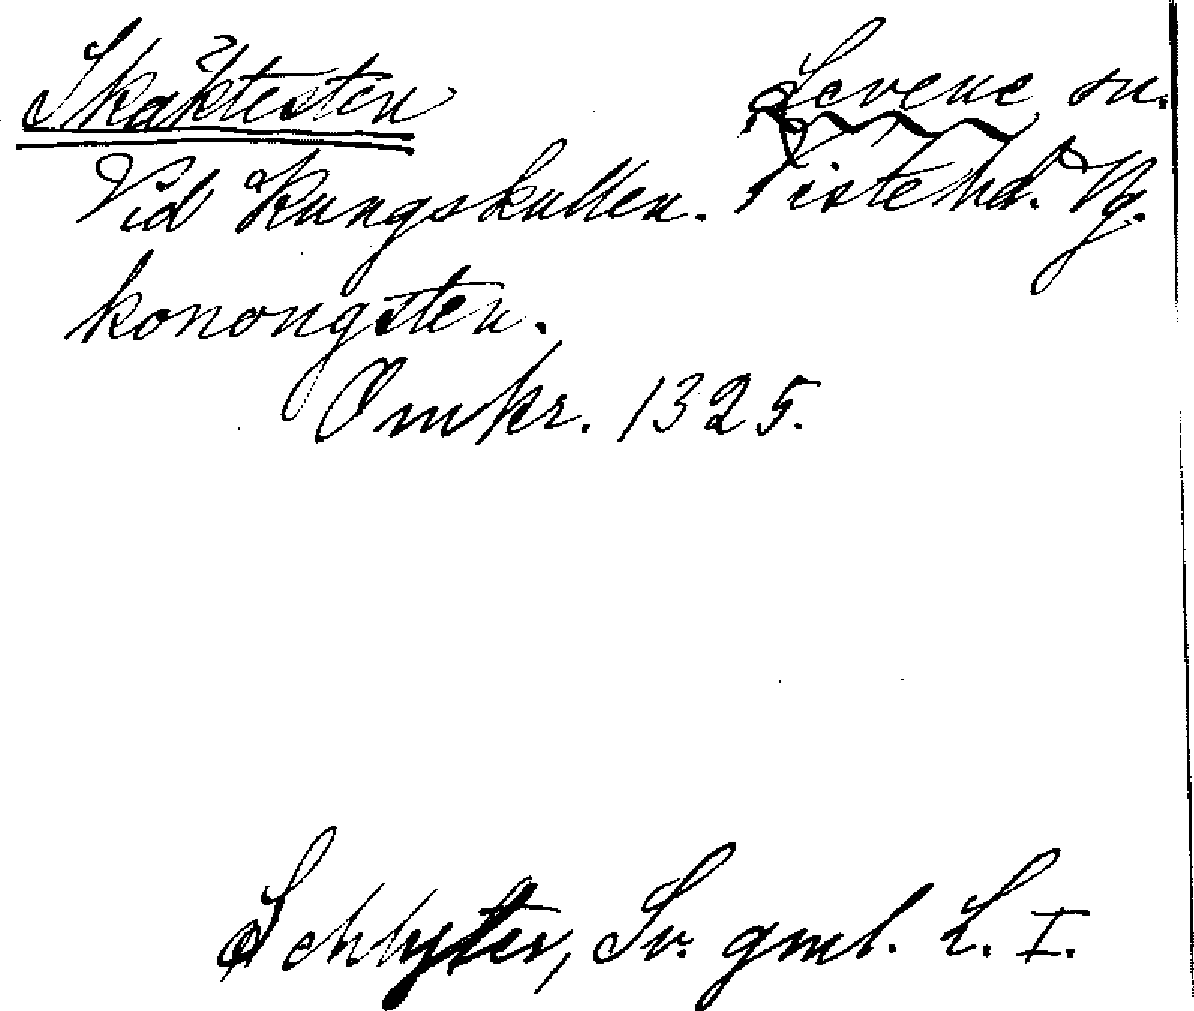 Skaktesten Levene sn.
Vid Kungskullen. Viste hd. Vg.
konongsten.
Omkr. 1325.
Schlyter, Sv. gml. L. I.